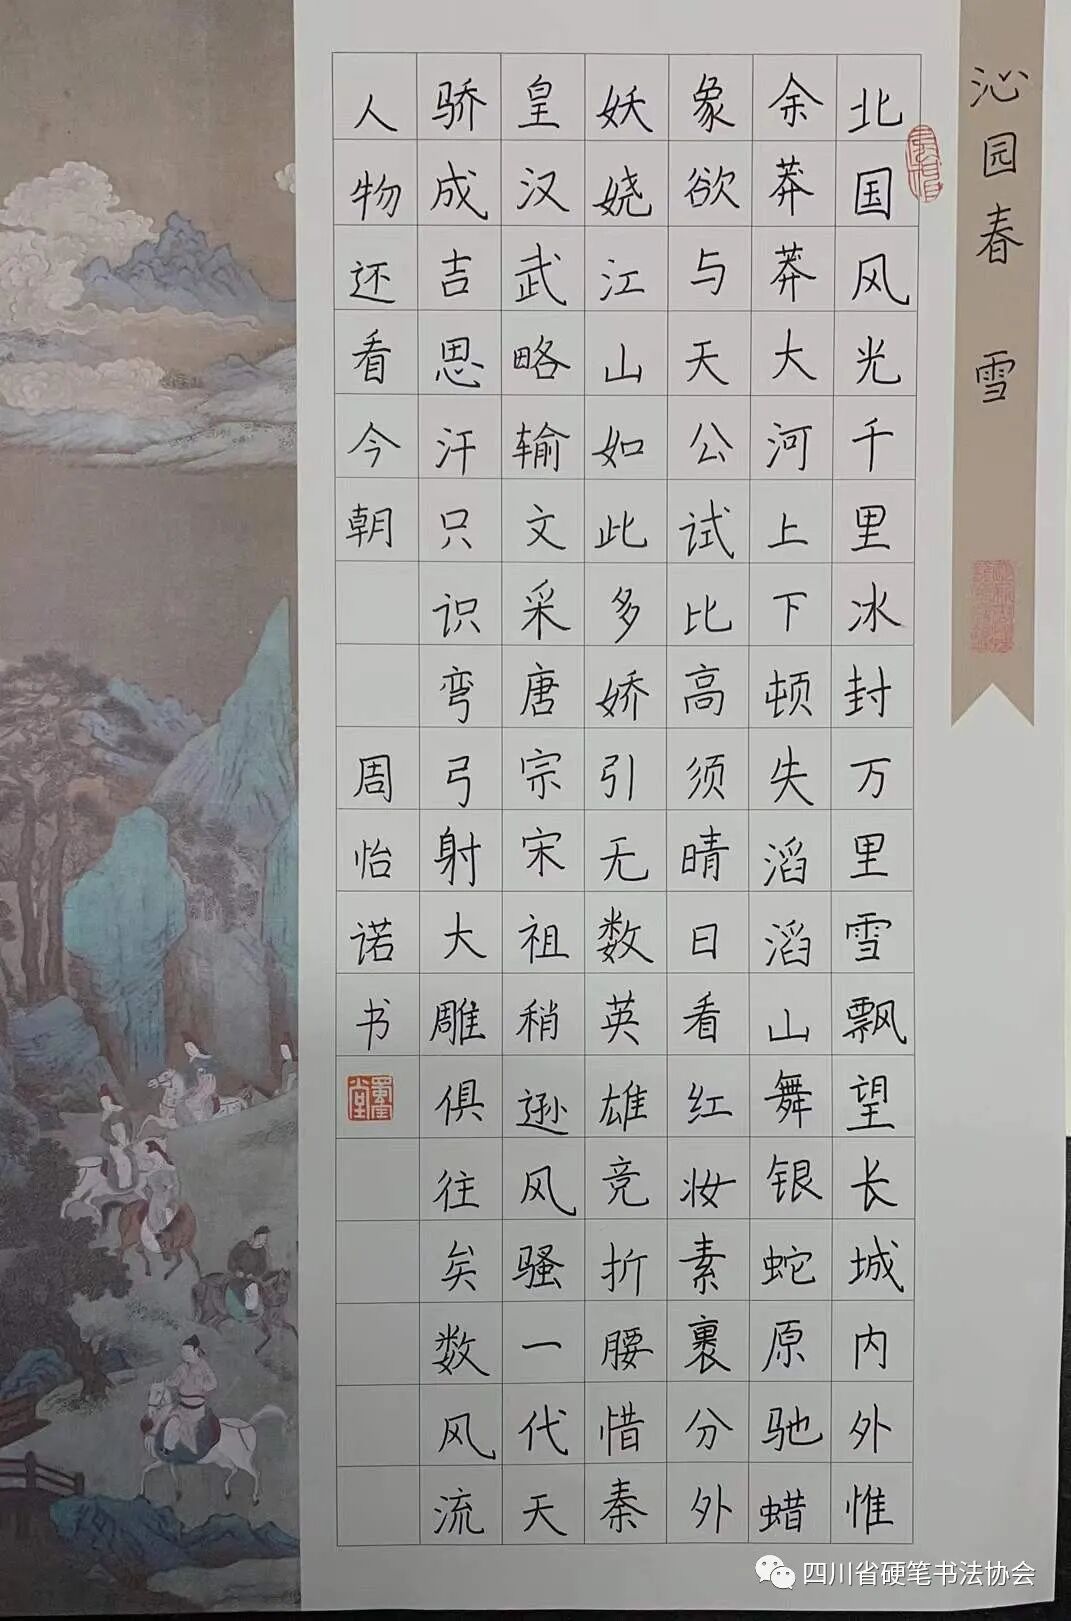 沁园春 雪
北国风光千里冰封万里雪飘望长城内外惟
余莽莽大河上下顿失滔滔山舞银蛇原驰蜡
象欲与天公试比高须晴日看红妆素裹分外
妖娆江山如此多娇引无数英雄竞折腰惜秦
皇汉武略输文采唐宗宋祖稍逊风骚一代天
骄成吉思汗只识弯弓射大雕俱往矣数风流
人物还看今朝 周怡诺书
四川省硬笔书法协会